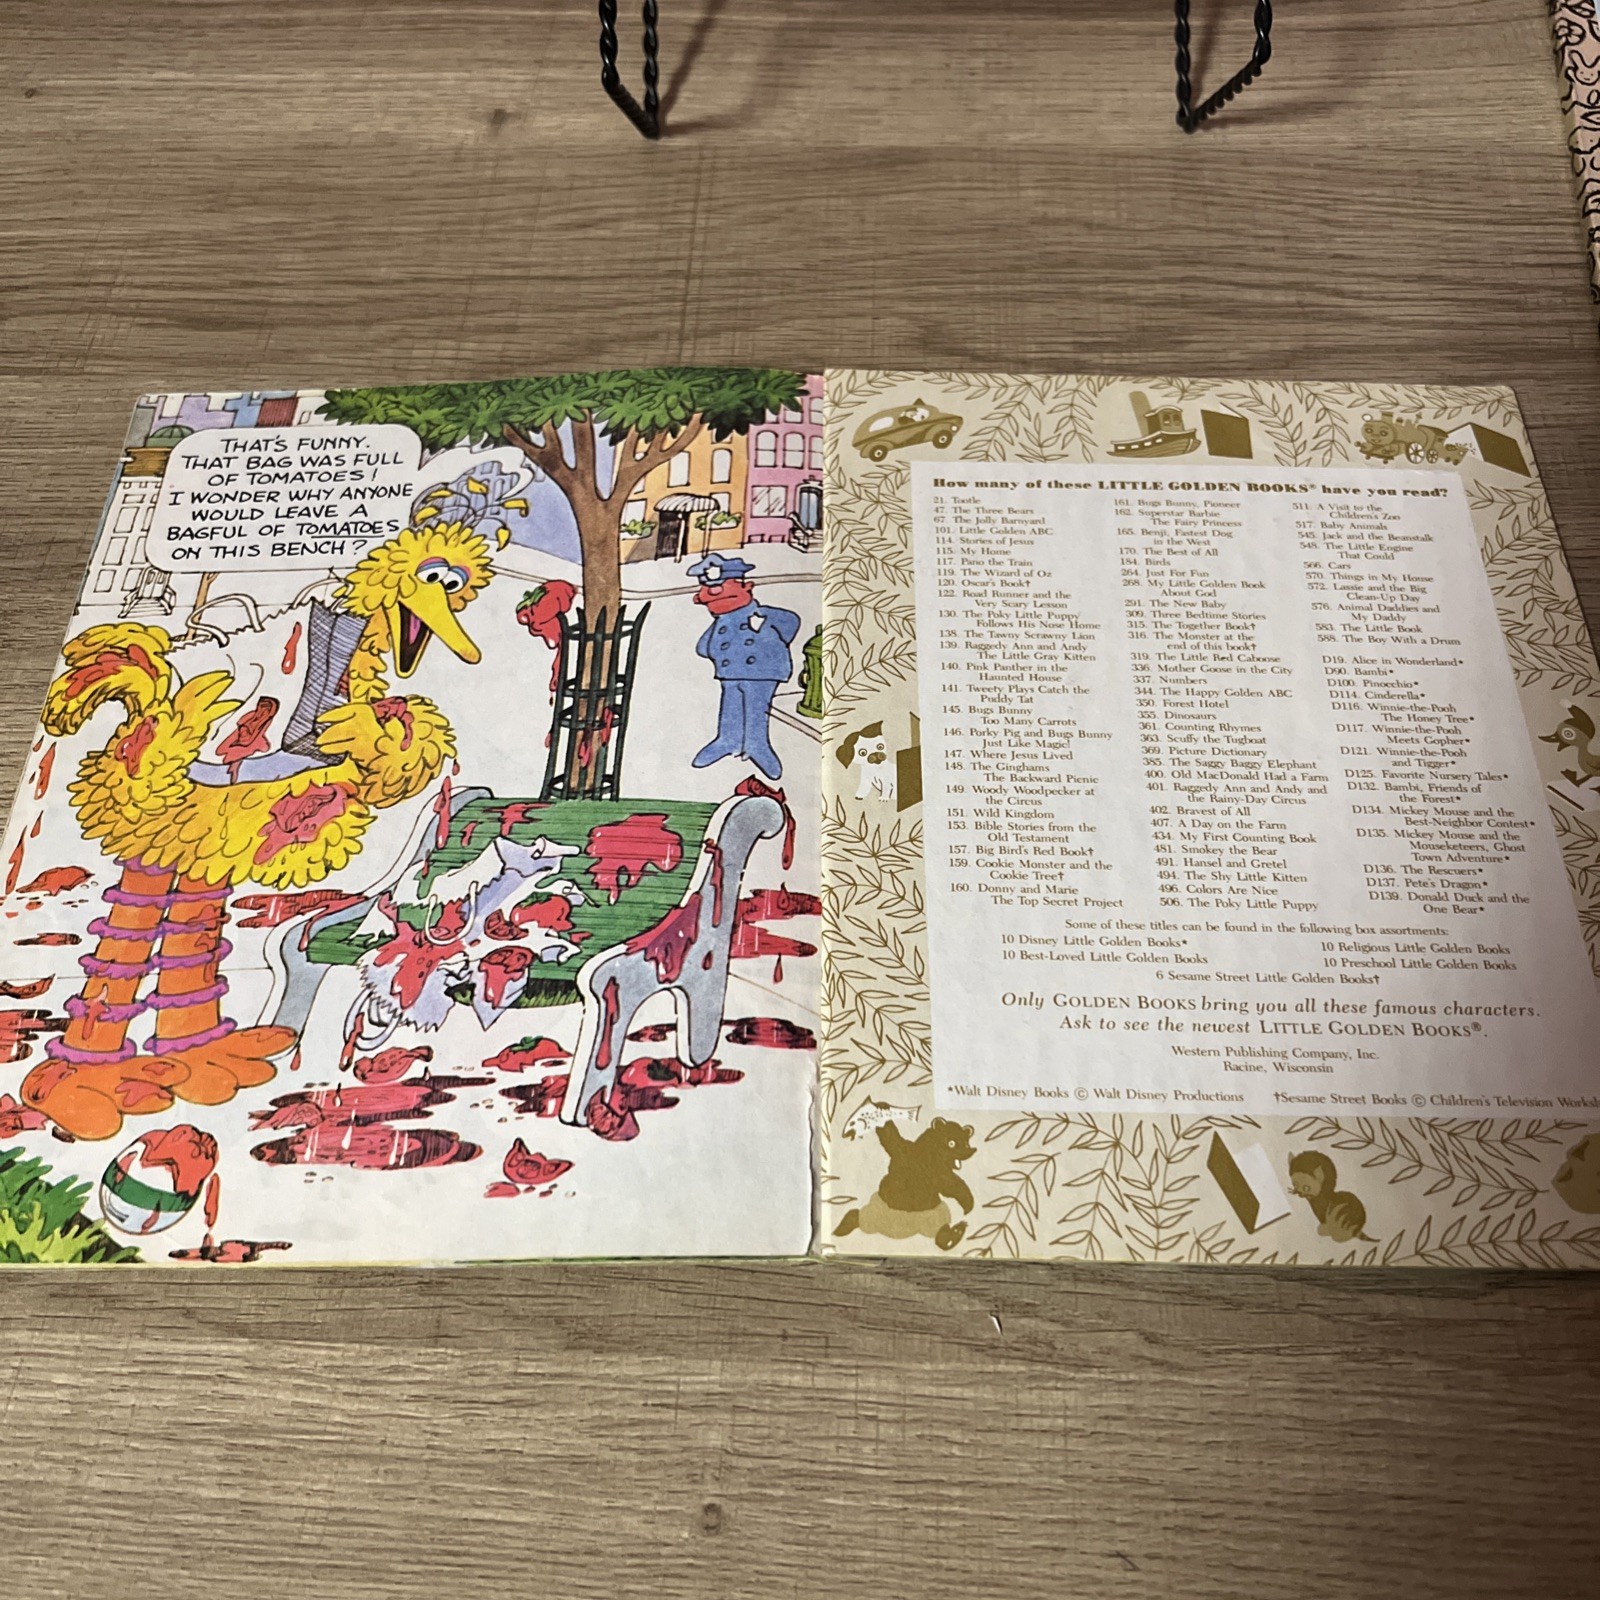 THAT'S FUNNY.
THAT BAG WAS FULL
OF TOMATOES!
I WONDER WHY ANYONE
WOULD LEAVE A
BAGFUL OF TOMATOES
ON THIS BENCH?
How many of these LITTLE GOLDEN BOOKS® have you read?
21. Tootle
47. The Three Bears
67. The Jolly Barnyard
101. Little Golden ABC
114. Stories of Jesus
115. My Home
117. Pano the Train
119. The Wizard of Oz
120. Oscar's Book†
122. Road Runner and the
Very Scary Lesson
130. The Poky Little Puppy
Follows His Nose Home
138. The Tawny Scrawny Lion
139. Raggedy Ann and Andy
The Little Gray Kitten
140. Pink Panther in the
Haunted House
141. Tweety Plays Catch the
Puddy Tat
145. Bugs Bunny
Too Many Carrots
146. Porky Pig and Bugs Bunny
Just Like Magic!
147. Where Jesus Lived
148. The Ginghams
The Backward Picnic
149. Woody Woodpecker at
the Circus
151. Wild Kingdom
153. Bible Stories from the
Old Testament
157. Big Bird's Red Book†
159. Cookie Monster and the
Cookie Tree†
160. Donny and Marie
The Top Secret Project
161. Bugs Bunny, Pioneer
162. Superstar Barbie
The Fairy Princess
165. Benji, Fastest Dog
in the West
170. The Best of All
184. Birds
264. Just For Fun
268. My Little Golden Book
About God
291. The New Baby
309. Three Bedtime Stories
315. The Together Book†
316. The Monster at the
end of this book†
319. The Little Red Caboose
336. Mother Goose in the City
337. Numbers
344. The Happy Golden ABC
350. Forest Hotel
355. Dinosaurs
361. Counting Rhymes
363. Scuffy the Tugboat
369. Picture Dictionary
385. The Saggy Baggy Elephant
400. Old MacDonald Had a Farm
401. Raggedy Ann and Andy and
the Rainy-Day Circus
402. Bravest of All
407. A Day on the Farm
434. My First Counting Book
481. Smokey the Bear
491. Hansel and Gretel
494. The Shy Little Kitten
496. Colors Are Nice
506. The Poky Little Puppy
511. A Visit to the
Children's Zoo
517. Baby Animals
545. Jack and the Beanstalk
548. The Little Engine
That Could
566. Cars
570. Things in My House
572. Lassie and the Big
Clean-Up Day
576. Animal Daddies and
My Daddy
583. The Little Book
588. The Boy With a Drum
D19. Alice in Wonderland*
D90. Bambi*
D100. Pinocchio*
D114. Cinderella*
D116. Winnie-the-Pooh
The Honey Tree*
D117. Winnie-the-Pooh
Meets Gopher*
D121. Winnie-the-Pooh
and Tigger*
D125. Favorite Nursery Tales*
D132. Bambi, Friends of
the Forest*
D134. Mickey Mouse and the
Best-Neighbor Contest*
D135. Mickey Mouse and the
Mouseketeers, Ghost
Town Adventure*
D136. The Rescuers*
D137. Pete's Dragon*
D139. Donald Duck and the
One Bear*
Some of these titles can be found in the following box assortments:
10 Disney Little Golden Books*
10 Religious Little Golden Books
10 Best-Loved Little Golden Books
10 Preschool Little Golden Books
6 Sesame Street Little Golden Books†
Only GOLDEN BOOKS bring you all these famous characters.
Ask to see the newest LITTLE GOLDEN BOOKS®.
Western Publishing Company, Inc.
Racine, Wisconsin
*Walt Disney Books © Walt Disney Productions †Sesame Street Books © Children's Television Worksh